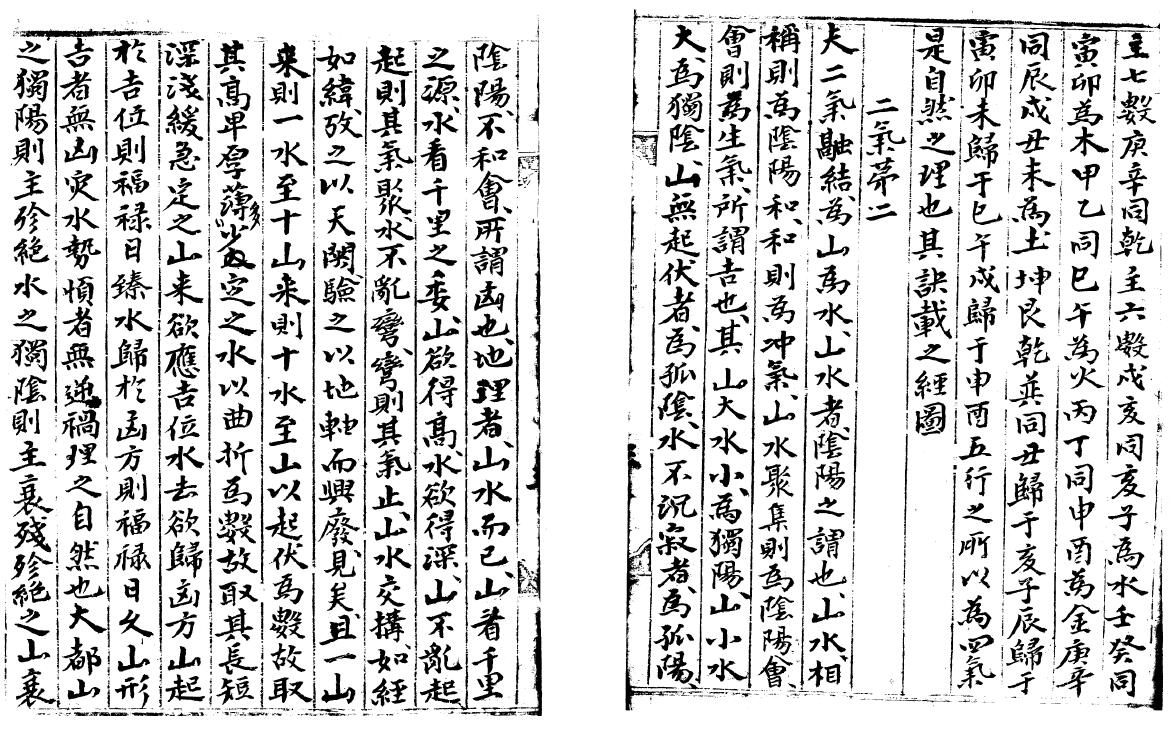 主七數庚辛同乾主六數戌亥同亥子為水壬癸同
寅卯為木甲乙同巳午為火丙丁同申酉為金庚辛
同辰戌丑未為土坤艮乾巽同丑歸于亥子辰歸于
寅卯未歸于巳午戌歸于申酉五行之所以為四氣
是自然之理也其訣載之經圖
二氣第二
夫二氣融結為山為水山水者陰陽之謂也山水相
稱則為陰陽和和則為冲氣山水聚集則為陰陽會
會則為生氣所謂吉也其山大水小為獨陽山小水
大為獨陰山無起伏者為孤陰水不沉寂者為孤陽
陰陽不和會所謂凶也地理者山水而已山看千里
之源水看千里之委山欲得高水欲得深山不亂起
起則其氣聚水不亂彎彎則其氣止山水交搆如經
如緯攷之以天關驗之以地軸而興廢見矣且一山
來則一水至十山來則十水至山以起伏為數故取
其高卑厚薄多少定之水以曲折為數故取其長短
深淺緩急定之山来欲應吉位水去欲歸凶方山起
於吉位則福禄日臻水歸於凶方則福禄日久山形
吉者無凶灾水勢順者無逆禍理之自然也大都山
之獨陽則主殄絶水之獨陰則主衰殘殄絶之山衰